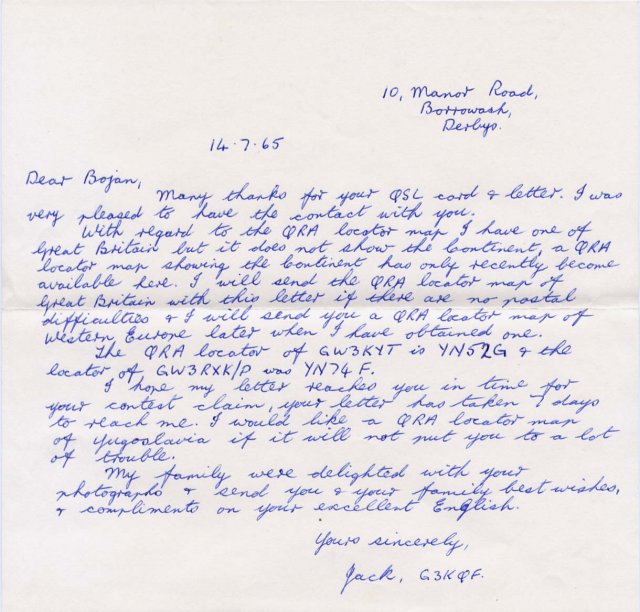 10, Manor Road,
Borrowash,
Derbys.
14.7.65
Dear Bojan,
Many thanks for your QSL card & letter. I was
very pleased to have the contact with you.
With regard to the QRA locator map I have one of
Great Britain but it does not show the Continent, a QRA
locator map showing the Continent has only recently become
available here. I will send the QRA locator map of
Great Britain with this letter if there are no postal
difficulties & I will send you a QRA locator map of
Western Europe later when I have obtained one.
The QRA locator of GW3KYT is YN52G & the
locator of GW3RXK/P was YN74F.
I hope my letter reaches you in time for
your contest claim, your letter has taken 7 days
to reach me. I would like a QRA locator map
of Yugoslavia if it will not put you to a lot
of trouble.
My family were delighted with your
photographs & send you & your family best wishes,
& compliments on your excellent English.
Yours sincerely,
Jack, G3KQF.